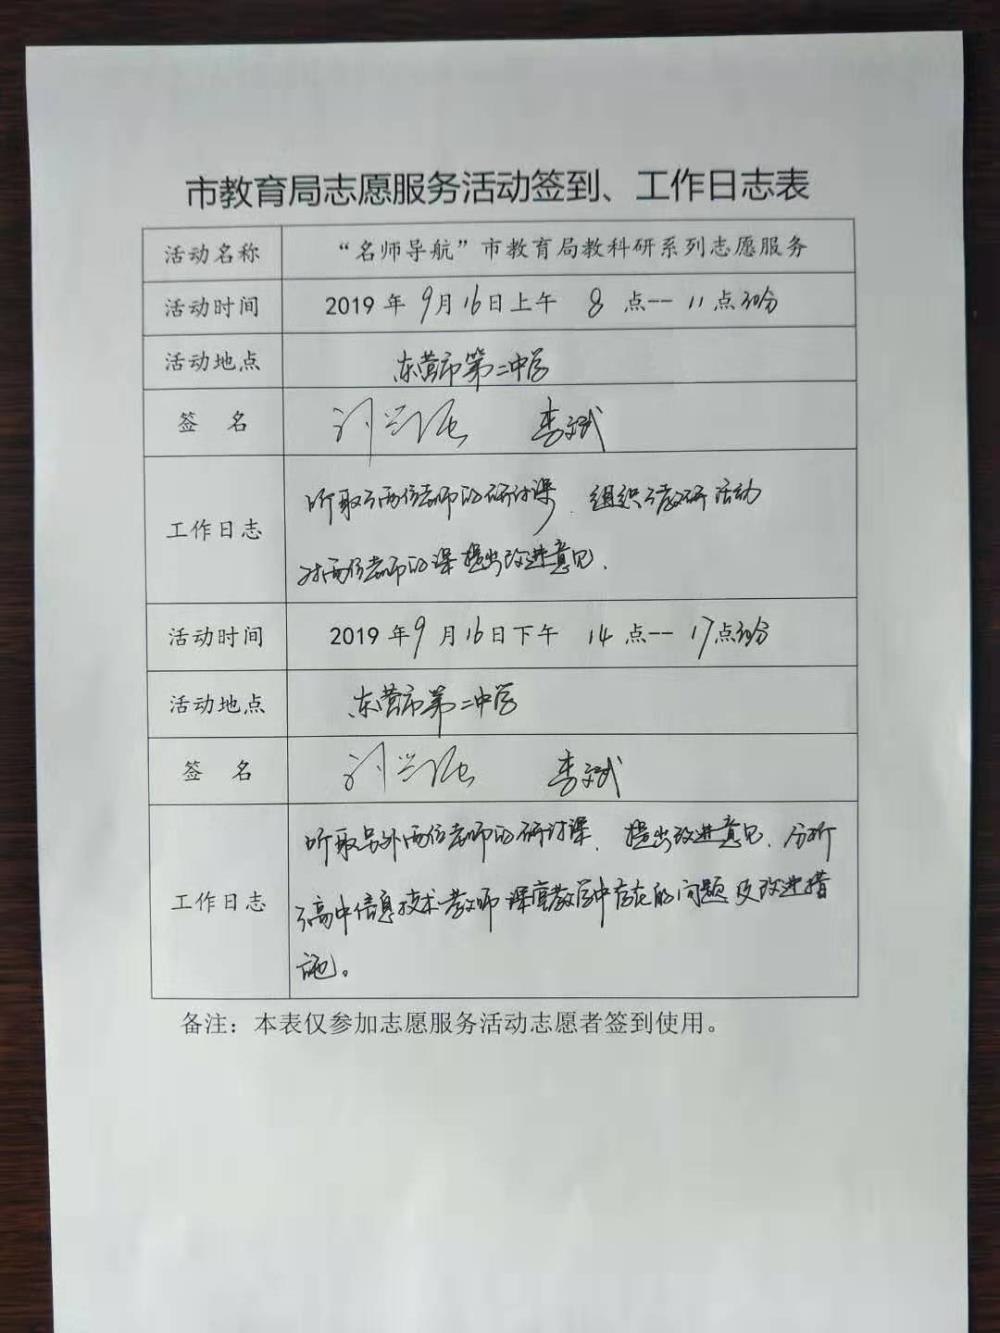 市教育局志愿服务活动签到、工作日志表
活动名称 “名师导航”市教育局教科研系列志愿服务
活动时间 2019 年 9月16日上午 8 点-- 11点30分
活动地点 东营市第二中学
签 名 刘兴 李斌
工作日志 听取了两位老师的研讨课，组织了教研活动
对两位老师的课提出改进意见.
活动时间 2019 年9月16日下午 14点-- 17点30分
活动地点 东营市第二中学
签 名 刘兴 李斌
工作日志 听取另外两位老师的研讨课，提出改进意见，分析
了高中信息技术教师课堂教学中存在的问题及改进措
施。
备注：本表仅参加志愿服务活动志愿者签到使用。